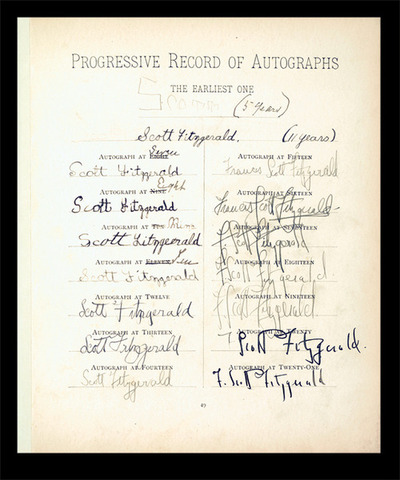 PROGRESSIVE RECORD OF AUTOGRAPHS
THE EARLIEST ONE
(5 Years)
Scott Fitzgerald. (11 years)
AUTOGRAPH AT EIGHT Seven
Scott Fitzgerald
AUTOGRAPH AT NINE Eight
Scott Fitzgerald
AUTOGRAPH AT TEN Nine
Scott Fitzgerald
AUTOGRAPH AT ELEVEN Ten
Scott Fitzgerald
AUTOGRAPH AT TWELVE
Scott Fitzgerald
AUTOGRAPH AT THIRTEEN
Scott Fitzgerald
AUTOGRAPH AT FOURTEEN
Scott Fitzgerald
AUTOGRAPH AT FIFTEEN
Francis Scott Fitzgerald
AUTOGRAPH AT SIXTEEN
Francis Scott Fitzgerald
AUTOGRAPH AT SEVENTEEN
F. Scott Fitzgerald
AUTOGRAPH AT EIGHTEEN
F. Scott Fitzgerald.
AUTOGRAPH AT NINETEEN
F. Scott Fitzgerald
AUTOGRAPH AT TWENTY
F. Scott Fitzgerald.
AUTOGRAPH AT TWENTY-ONE
F. Scott Fitzgerald